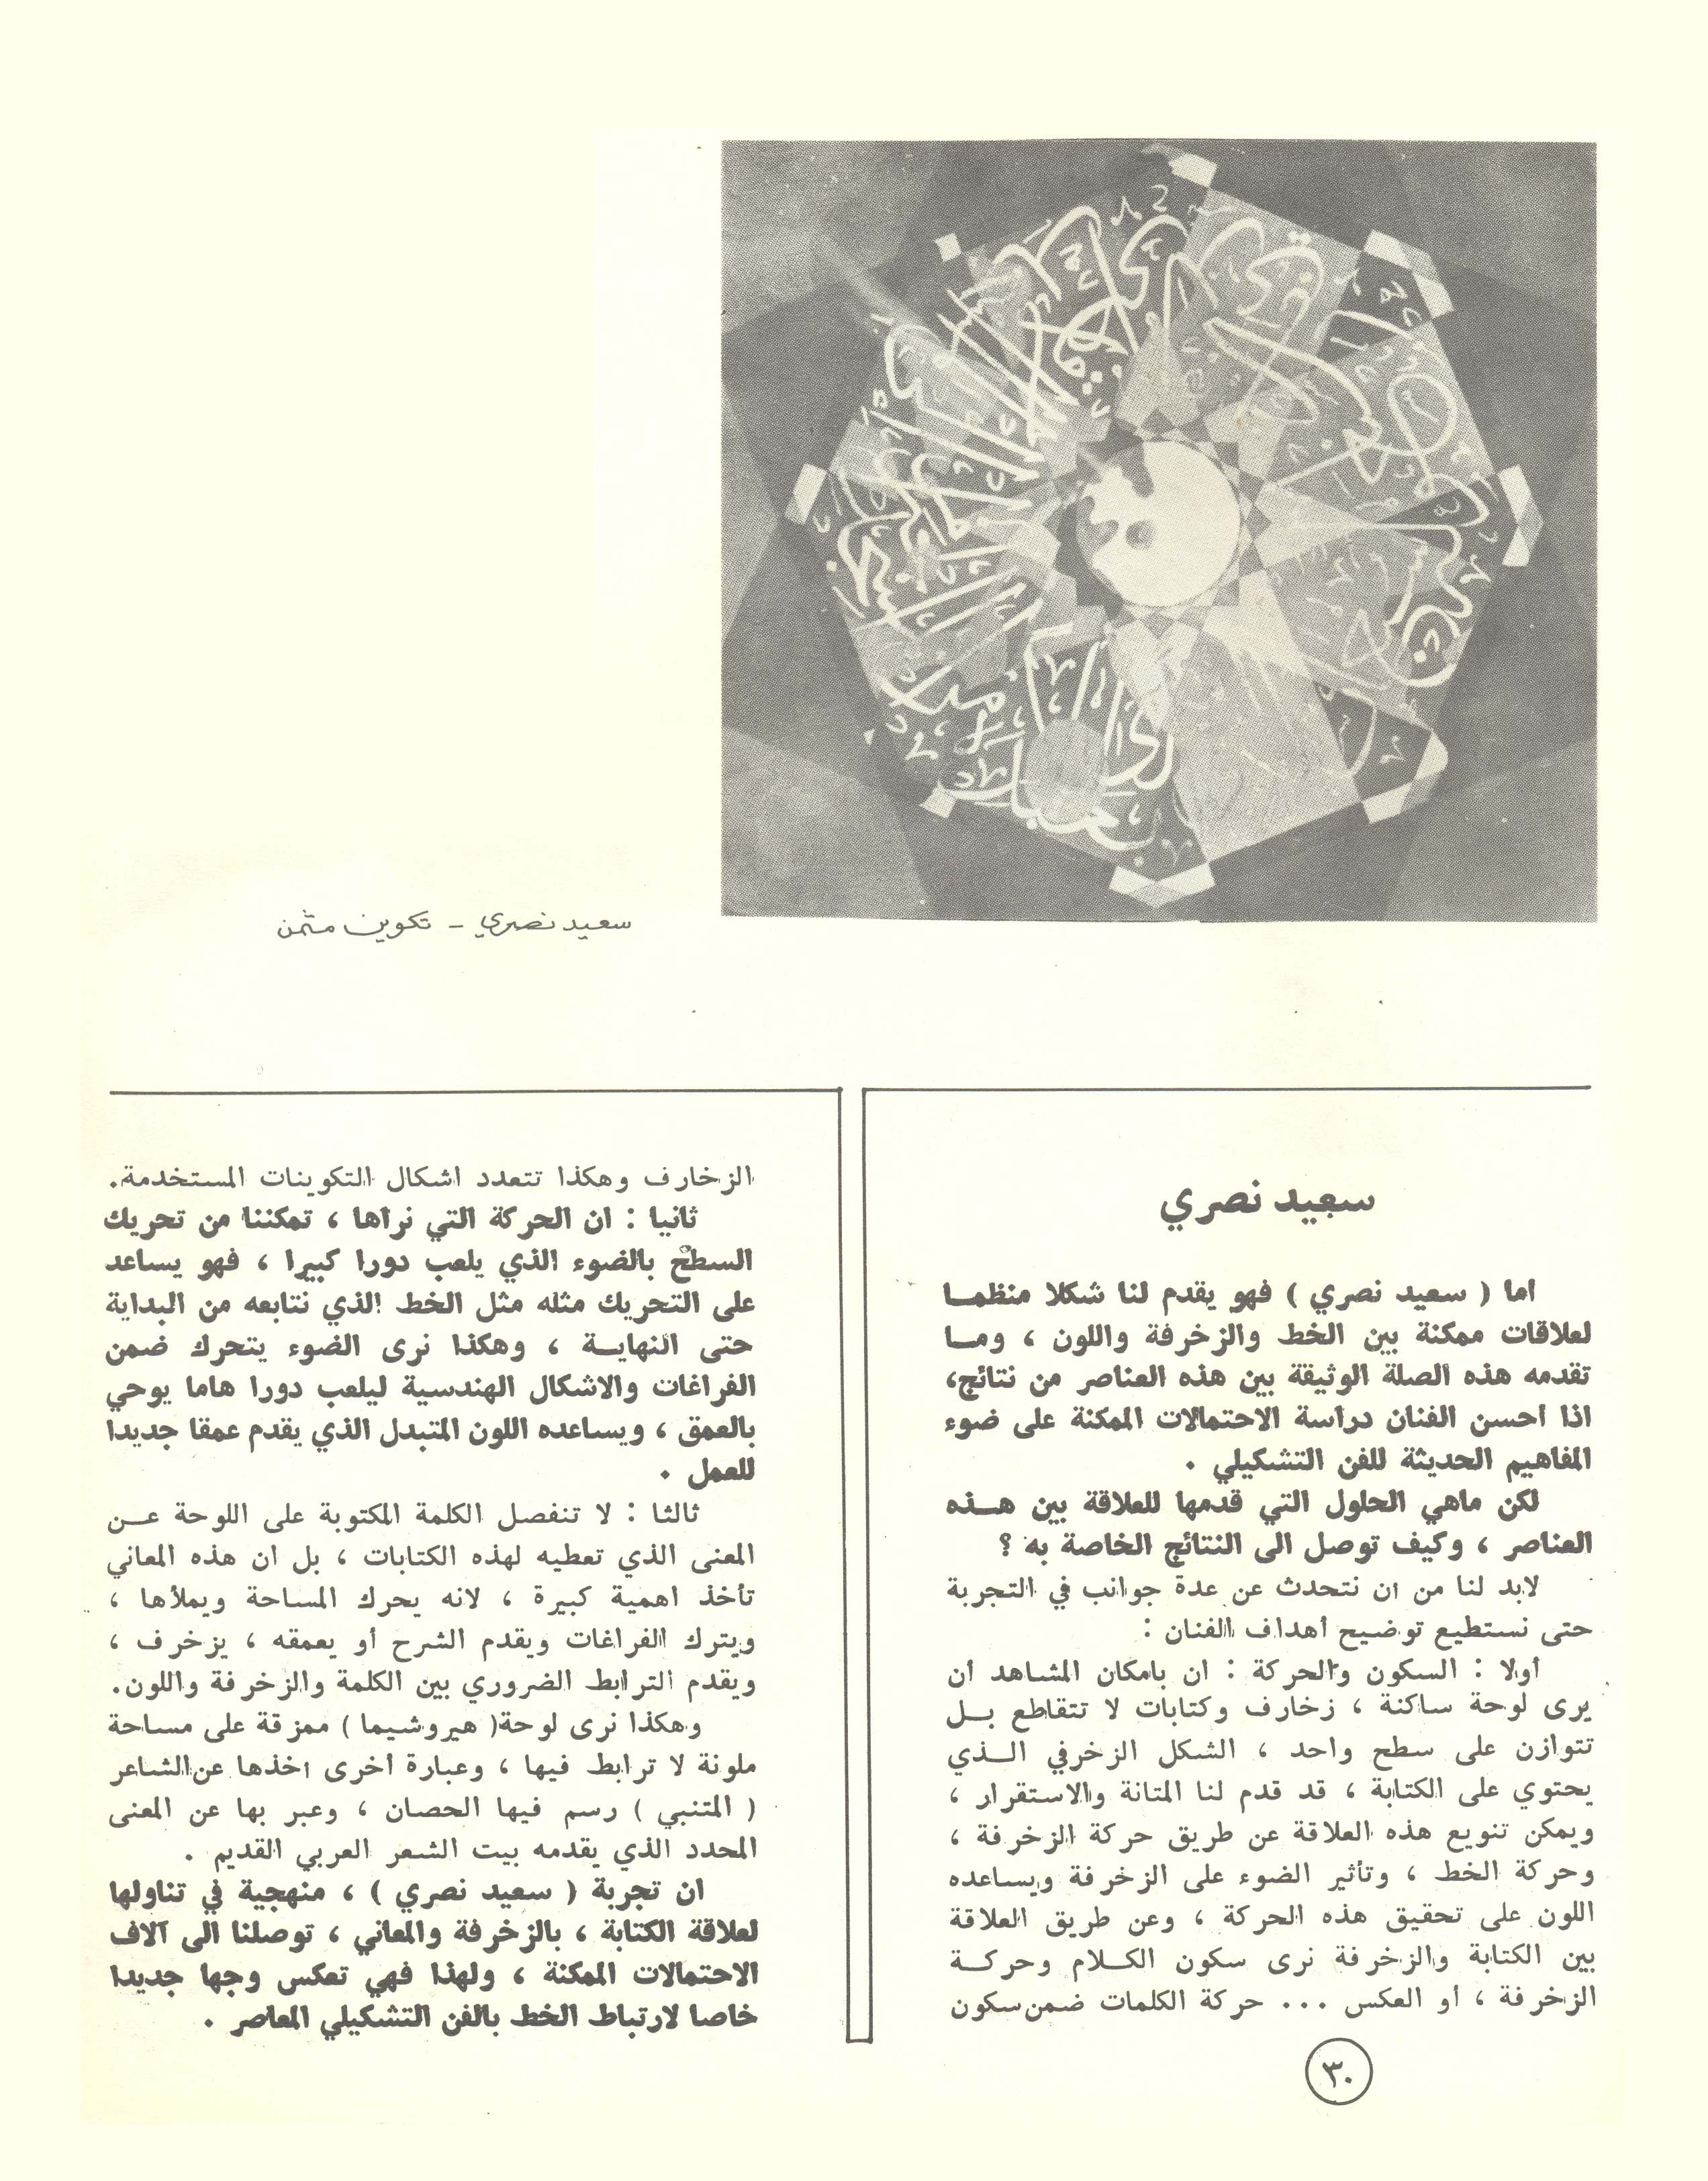 سعيد نصري - تكوين مثمن
سعيد نصري
اما ( سعيد نصري ) فهو يقدم لنا شكلا منظما
لعلاقات ممكنة بين الخط والزخرفة واللون ، وما
تقدمه هذه الصلة الوثيقة بين هذه العناصر من نتائج،
اذا أحسن الفنان دراسة الاحتمالات الممكنة على ضوء
المفاهيم الحديثة للفن التشكيلي .
لكن ماهي الحلول التي قدمها للعلاقة بين هذه
العناصر ، وكيف توصل الى النتائج الخاصة به ؟
لابد لنا من ان نتحدث عن عدة جوانب في التجربة
حتى نستطيع توضيح أهداف الفنان :
أولا : السكون والحركة : ان بامكان المشاهد أن
يرى لوحة ساكنة ، زخارف وكتابات لا تتقاطع بل
تتوازن على سطح واحد ، الشكل الزخرفي الذي
يحتوي على الكتابة ، قد قدم لنا المتانة والاستقرار ،
ويمكن تنويع هذه العلاقة عن طريق حركة الزخرفة ،
وحركة الخط ، وتأثير الضوء على الزخرفة ويساعده
اللون على تحقيق هذه الحركة ، وعن طريق العلاقة
بين الكتابة والزخرفة نرى سكون الكلام وحركة
الزخرفة ، أو العكس ... حركة الكلمات ضمن سكون
الزخارف وهكذا تتعدد اشكال التكوينات المستخدمة.
ثانيا : ان الحركة التي نراها ، تمكننا من تحريك
السطح بالضوء الذي يلعب دورا كبيرا ، فهو يساعد
على التحريك مثله مثل الخط الذي نتابعه من البداية
حتى النهاية ، وهكذا نرى الضوء يتحرك ضمن
الفراغات والاشكال الهندسية ليلعب دورا هاما يوحي
بالعمق ، ويساعده اللون المتبدل الذي يقدم عمقا جديدا
للعمل .
ثالثا : لا تنفصل الكلمة المكتوبة على اللوحة عن
المعنى الذي تعطيه لهذه الكتابات ، بل ان هذه المعاني
تأخذ اهمية كبيرة ، لانه يحرك المساحة ويملأها ،
ويترك الفراغات ويقدم الشرح أو يعمقه ، يزخرف ،
ويقدم الترابط الضروري بين الكلمة والزخرفة واللون.
وهكذا نرى لوحة( هيروشيما ) ممزقة على مساحة
ملونة لا ترابط فيها ، وعبارة أخرى أخذها عن الشاعر
( المتنبي ) رسم فيها الحصان ، وعبر بها عن المعنى
المحدد الذي يقدمه بيت الشعر العربي القديم .
ان تجربة ( سعيد نصري ) ، منهجية في تناولها
لعلاقة الكتابة ، بالزخرفة والمعاني ، توصلنا الى آلاف
الاحتمالات الممكنة ، ولهذا فهي تعكس وجها جديدا
خاصا لارتباط الخط بالفن التشكيلي المعاصر .
٣٠